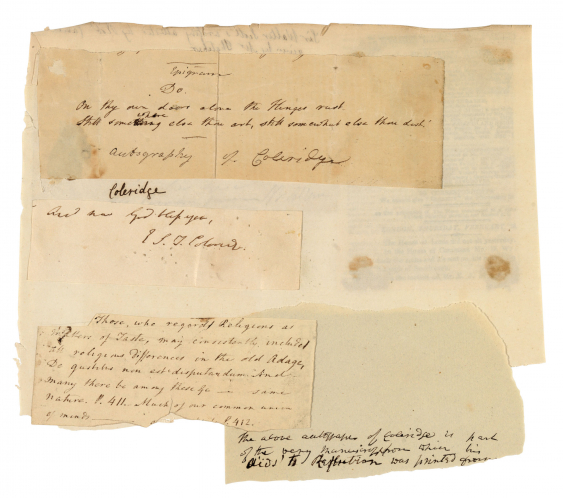 Epigram
Do.
On thy own doors alone the Hinges rust.
Still somewhere else thou art, still somewhat else thou dost!
autography of Coleridge
Coleridge
And now God bless you,
S. T. Coleridge
Those, who regard Religions as
matters of Taste, may consistently include
all religious differences in the old Adage,
De gustibus non est disputandum: And
many there be among these of a same
nature. P. 411. Much of our common union
of minds P. 412.
the above autograph of Coleridge is part
of the very manuscript from which his
"Aids to Reflection" was printed from